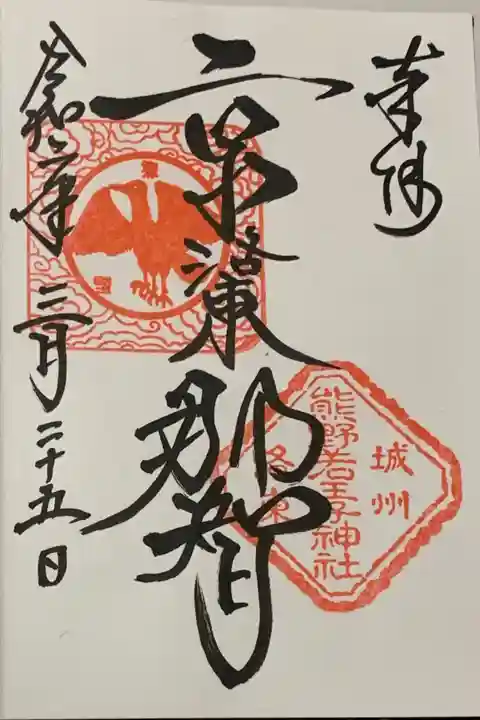 奉拝
京洛東那智
令和年三月二十五日
城州
熊野若王子神社
洛東